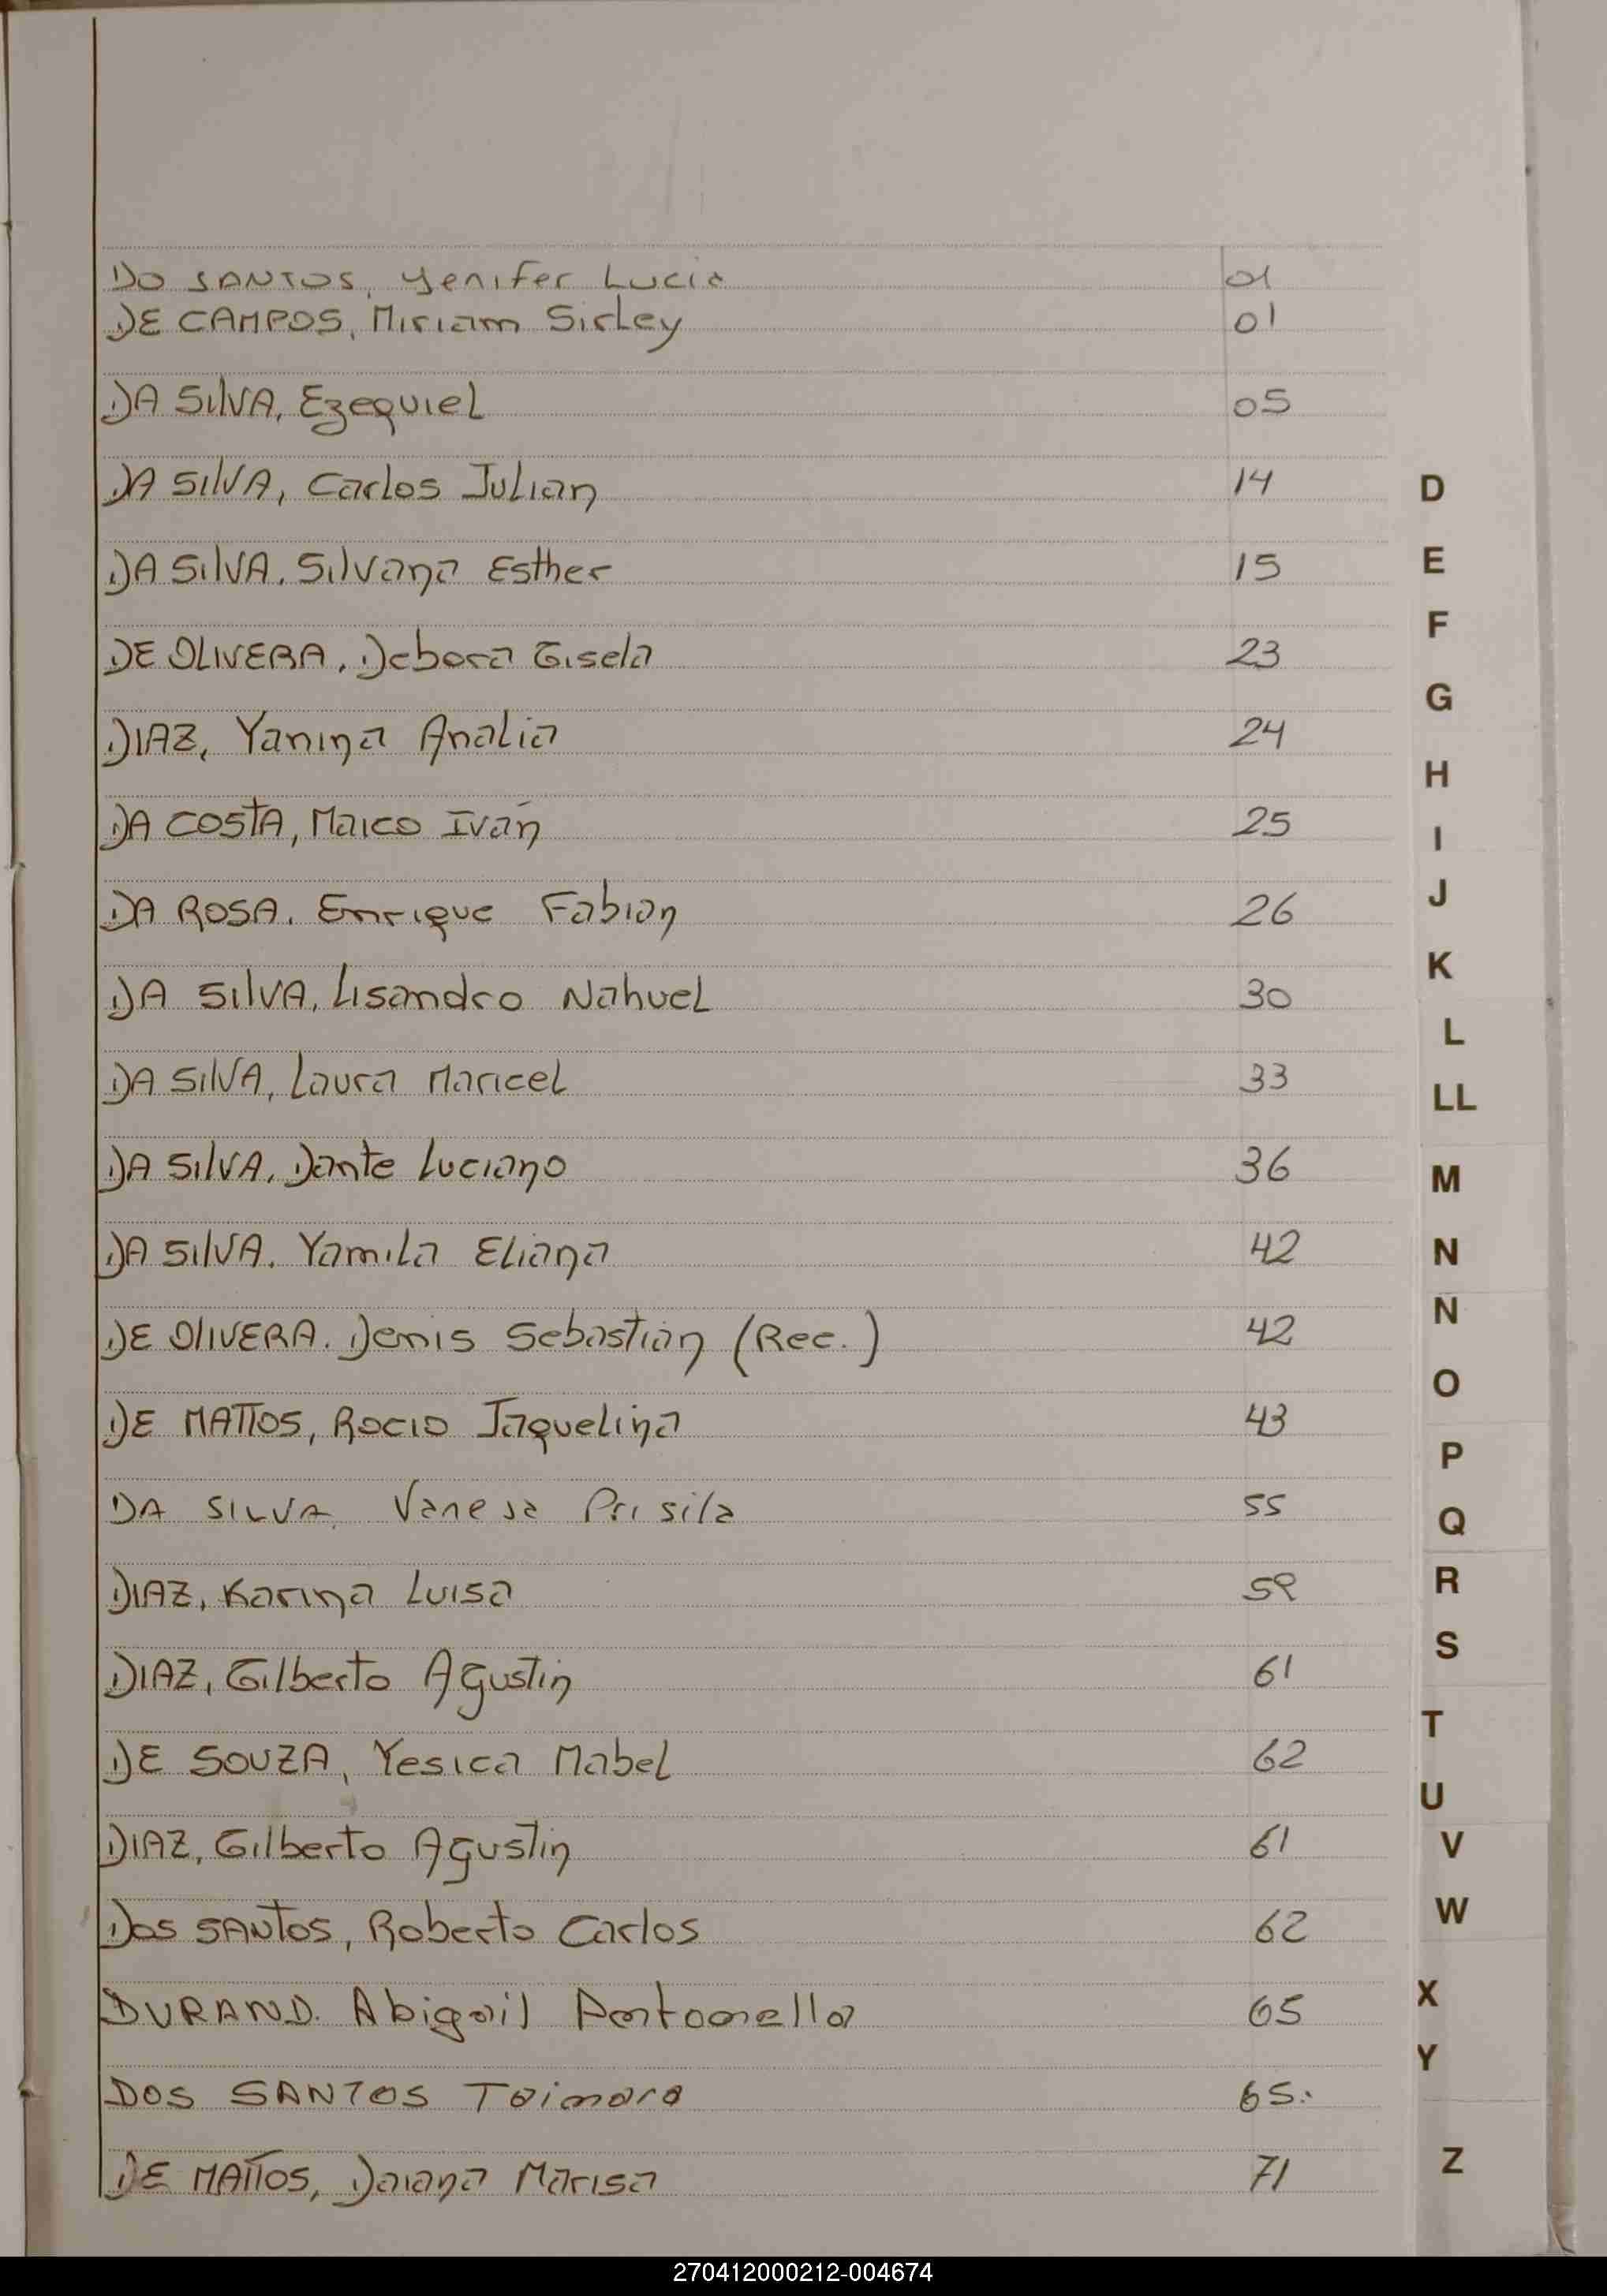 DO SANTOS, Yenifer Lucia 01
DE CAMPOS, Miriam Sirley 01
DA SILVA, Ezequiel 05
DA SILVA, Carlos Julian 14
D
DA SILVA. Silvana Esther 15
E
F
DE OLIVERA, Debora Gisela 23
G
DIAZ, Yanina Analia 24
H
DA COSTA, Maico Iván 25
I
J
DA ROSA. Enrique Fabian 26
K
DA SILVA, Lisandro Nahuel 30
L
DA SILVA, Laura Maricel 33
LL
DA SILVA, Dante Luciano 36
M
DA SILVA. Yamila Eliana 42
N
N
DE OLIVERA. Denis Sebastian (Rec.) 42
O
DE MATTOS, Rocio Jaquelina 43
P
DA SILVA, Vanesa Prisila 55
Q
R
DIAZ, Karina Luisa 59
S
DIAZ, Gilberto Agustin 61
T
DE SOUZA, Yesica Mabel 62
U
DIAZ, Gilberto Agustin 61
V
W
DOS SANTOS, Roberto Carlos 62
X
DURAND. Abigail Antonella 65
Y
DOS SANTOS Taimara 65.
Z
DE MATTOS, Daiana Marisa 71
270412000212-004674